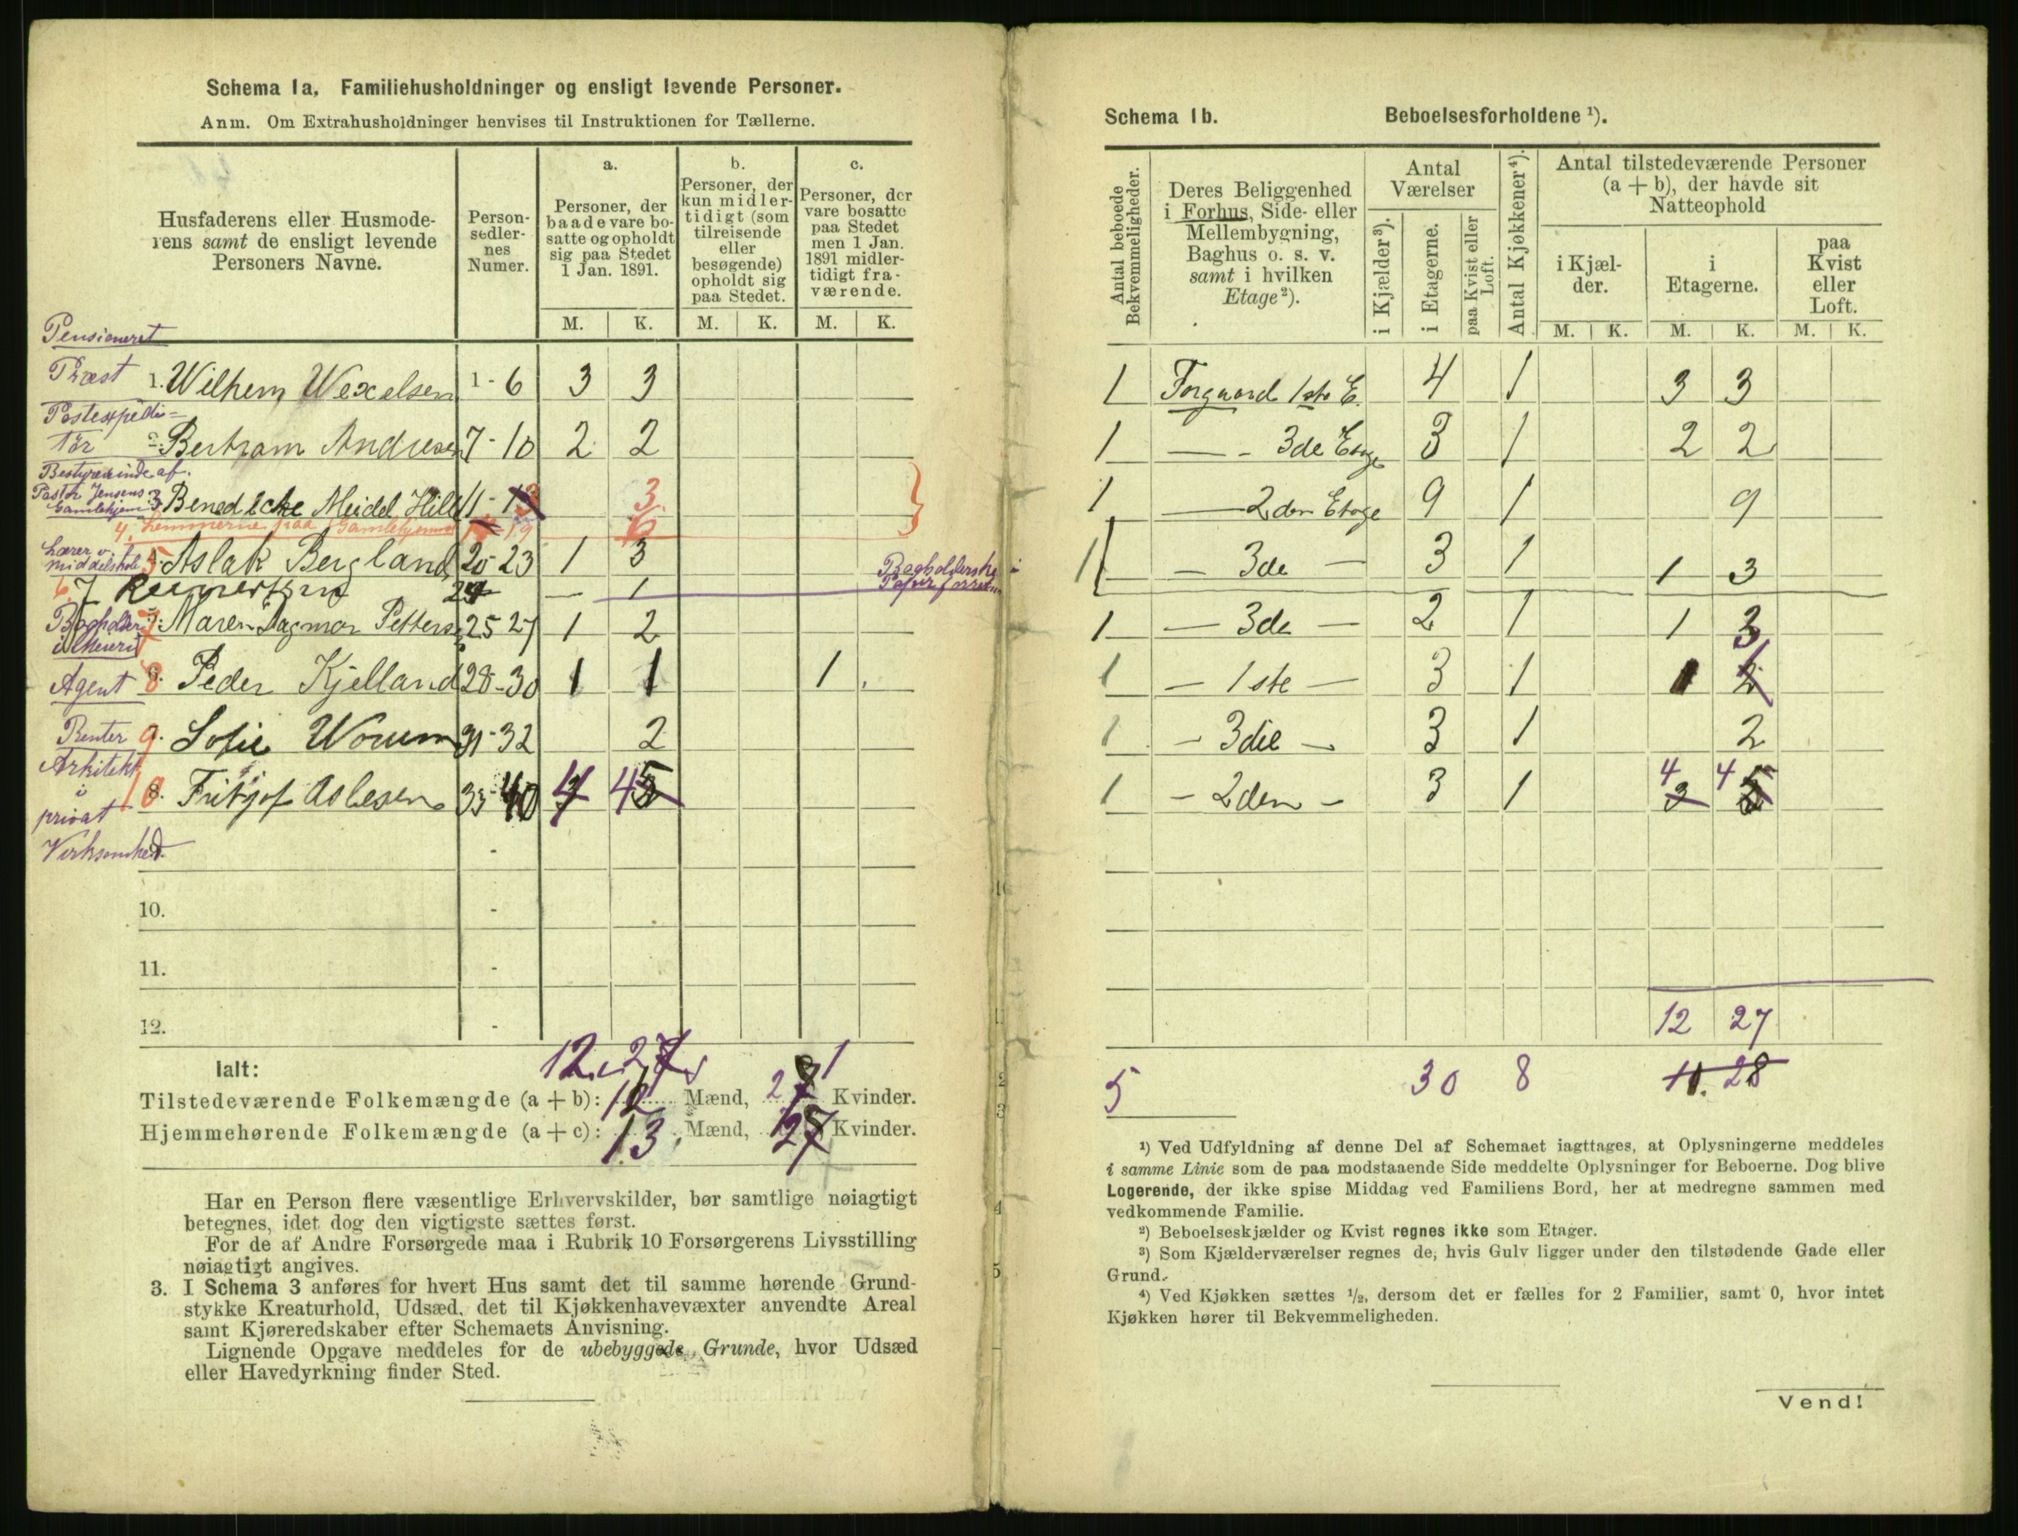 Schema 1a. Familiehusholdninger og ensligt levende Personer.
Anm. Om Extrahusholdninger henvises til Instruktionen for Tællerne.
Husfaderens eller Husmode-
rens samt de ensligt levende
Personers Navne.
Person-
sedler-
nes
Numer.
a.
Personer, der
baade vare bo-
satte og opholdt
sig paa Stedet
1 Jan. 1891.
b.
Personer, der
kun midler-
tidigt (som
tilreisende
eller
besøgende)
opholdt sig
paa Stedet.
c.
Personer, der
vare bosatte
paa Stedet
men 1 Jan.
1891 midler-
tidigt fra-
værende.
M. K. M. K. M. K.
Pensioneret
Præst 1. Wilhem Wexelsen 1 - 6 3 3
Postexpedi=
tör 2. Bertram Andresen 7 - 10 2 2
Bestyrerinde af
Pastor Jensens
Gamlehjem 3. Benedicke Meidel Hille 11 - 13 3
4. Lemmerne paa Gamlehjemmet 19 6
Lærer v.
middelskole 5. Aslak Bergland 20 - 23 1 3
6. J Reinertsen 24 — 1
Bogholderske i
Papirforretn
Bogholder
i Meieri 7. Maren Dagmar Petters 25 27 1 2
Agent 8. Peder Kjelland 28 - 30 1 1 1
Renter 9. Sofie Worum 31 - 32 2
Arkitekt
i
privat
Virksomhed 10 8. Fritjof Aslesen 33 40 4 4 5
-
10. -
11. -
12. -
Ialt: 12 27
Tilstedeværende Folkemængde (a + b): 12 Mænd, 27 Kvinder.
Hjemmehørende Folkemængde (a + c): 13 Mænd, 27 Kvinder.
Har en Person flere væsentlige Erhvervskilder, bør samtlige nøiagtigt
betegnes, idet dog den vigtigste sættes først.
For de af Andre Forsørgede maa i Rubrik 10 Forsørgerens Livsstilling
nøiagtigt angives.
3. I Schema 3 anføres for hvert Hus samt det til samme hørende Grund-
stykke Kreaturhold, Udsæd, det til Kjøkkenhavevæxter anvendte Areal
samt Kjøreredskaber efter Schemaets Anvisning.
Lignende Opgave meddeles for de ubebyggede Grunde, hvor Udsæd
eller Havedyrkning finder Sted.
Schema 1b. Beboelsesforholdene ¹).
Antal beboede
Bekvemmeligheder.
Deres Beliggenhed
i Forhus, Side- eller
Mellembygning,
Baghus o. s. v.
samt i hvilken
Etage ²).
Antal
Værelser
i Kjælder ³).
i Etagerne.
paa Kvist eller
Loft.
Antal Kjøkkener ⁴).
Antal tilstedeværende Personer
(a + b), der havde sit
Natteophold
i Kjæl-
der.
i
Etagerne.
paa
Kvist
eller
Loft.
M. K. M. K. M. K.
1 Forgaard 1ste E. 4 1 3 3
1 — - 3de Etage 3 1 2 2
1 — 2den Etage 9 1 9
1 — 3de — 3 1 1 3
1 — 3de — 2 1 1 3
1 — 1ste — 3 1 1 1 2
1 — 3die — 3 1 2
1 — 2den — 3 1 4 3 4 5
12 27
5 30 8 11. 28
¹) Ved Udfyldning af denne Del af Schemaet iagttages, at Oplysningerne meddeles
i samme Linie som de paa modstaaende Side meddelte Oplysninger for Beboerne. Dog blive
Logerende, der ikke spise Middag ved Familiens Bord, her at medregne sammen med
vedkommende Familie.
²) Beboelseskjælder og Kvist regnes ikke som Etager.
³) Som Kjælderværelser regnes de, hvis Gulv ligger under den tilstødende Gade eller
Grund.
⁴) Ved Kjøkken sættes ½, dersom det er fælles for 2 Familier, samt 0, hvor intet
Kjøkken hører til Bekvemmeligheden.
Vend!